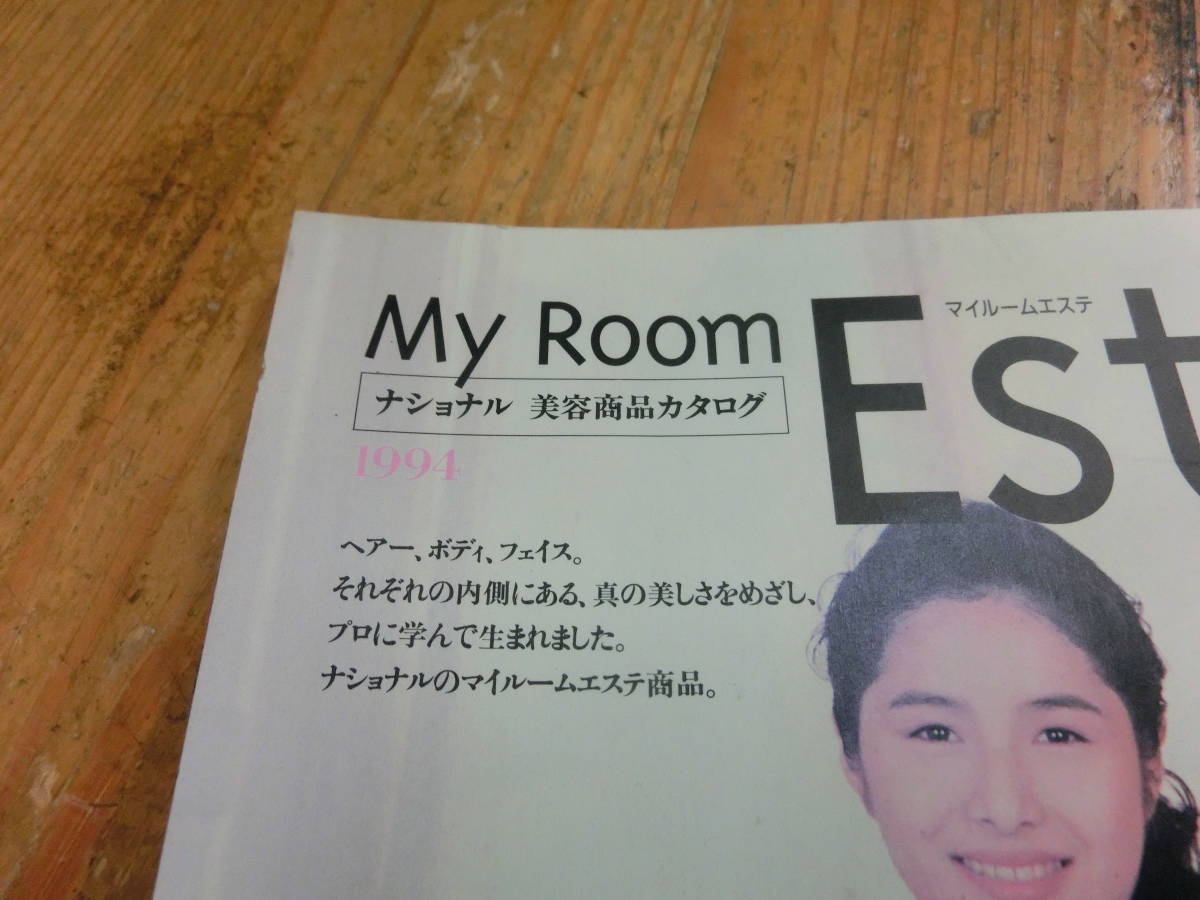 My Room
マイルームエステ
Est
ナショナル 美容商品カタログ
1994
ヘアー、ボディ、フェイス。
それぞれの内側にある、真の美しさをめざし、
プロに学んで生まれました。
ナショナルのマイルームエステ商品。